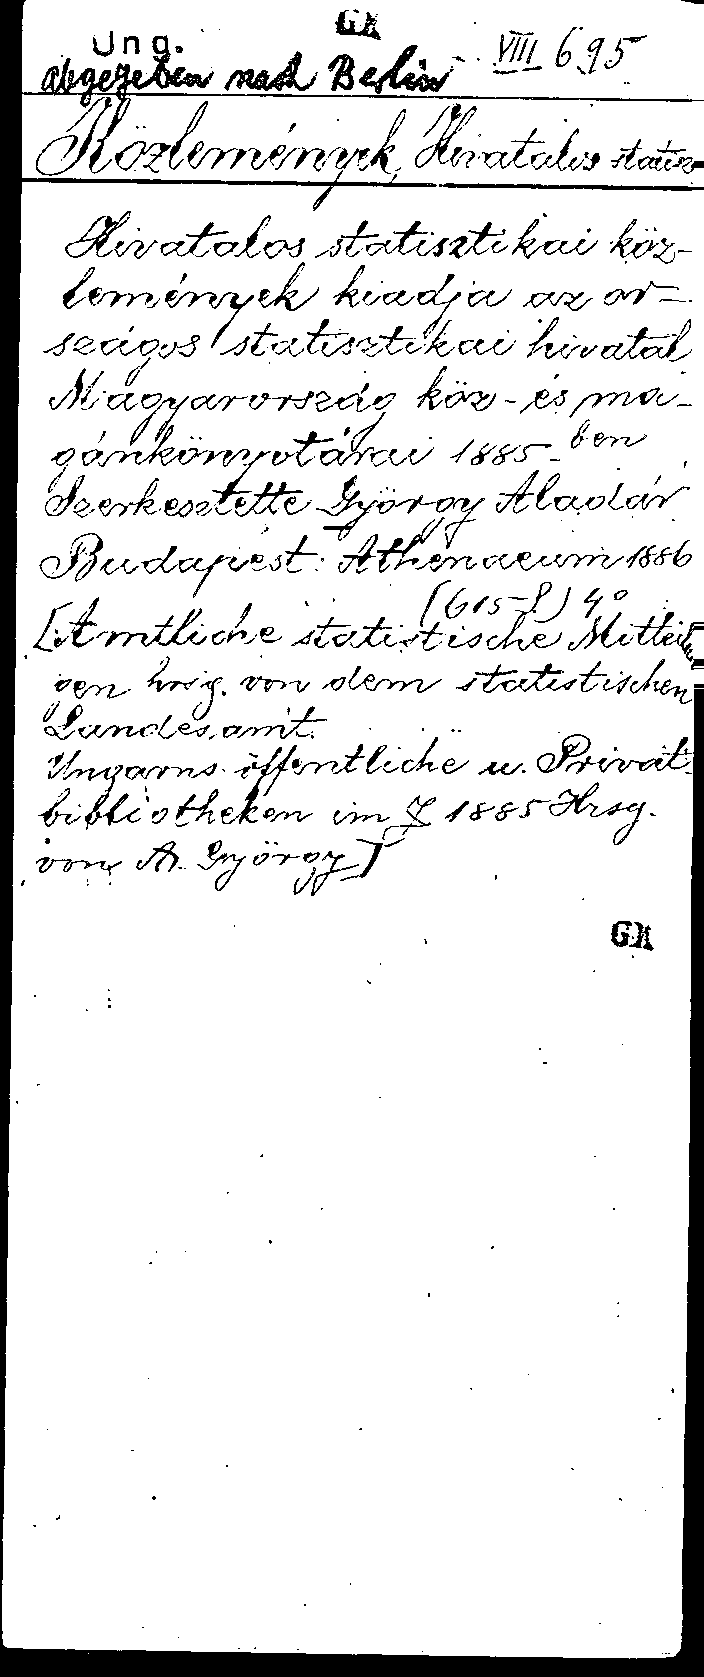 GK
Ung. VIII 695
abgegeben nach Berlin
Közlemények, Hivatalos statisz-
Hivatalos statisztikai köz-
lemények kiadja az or=
szágos statisztikai hivatal
Magyarország köz- és ma-
gánkönyvtárai 1885-ben
Szerkesztette György Aladár
Budapest: Athenaeum 1886
(615 S.) 4°
[Amtliche statistische Mitteilun
gen hrsg. von dem statistischen
Landesamt.
Ungarns öffentliche u. Privat-
bibliotheken im J 1885 Hrsg.
von A. György]
GK